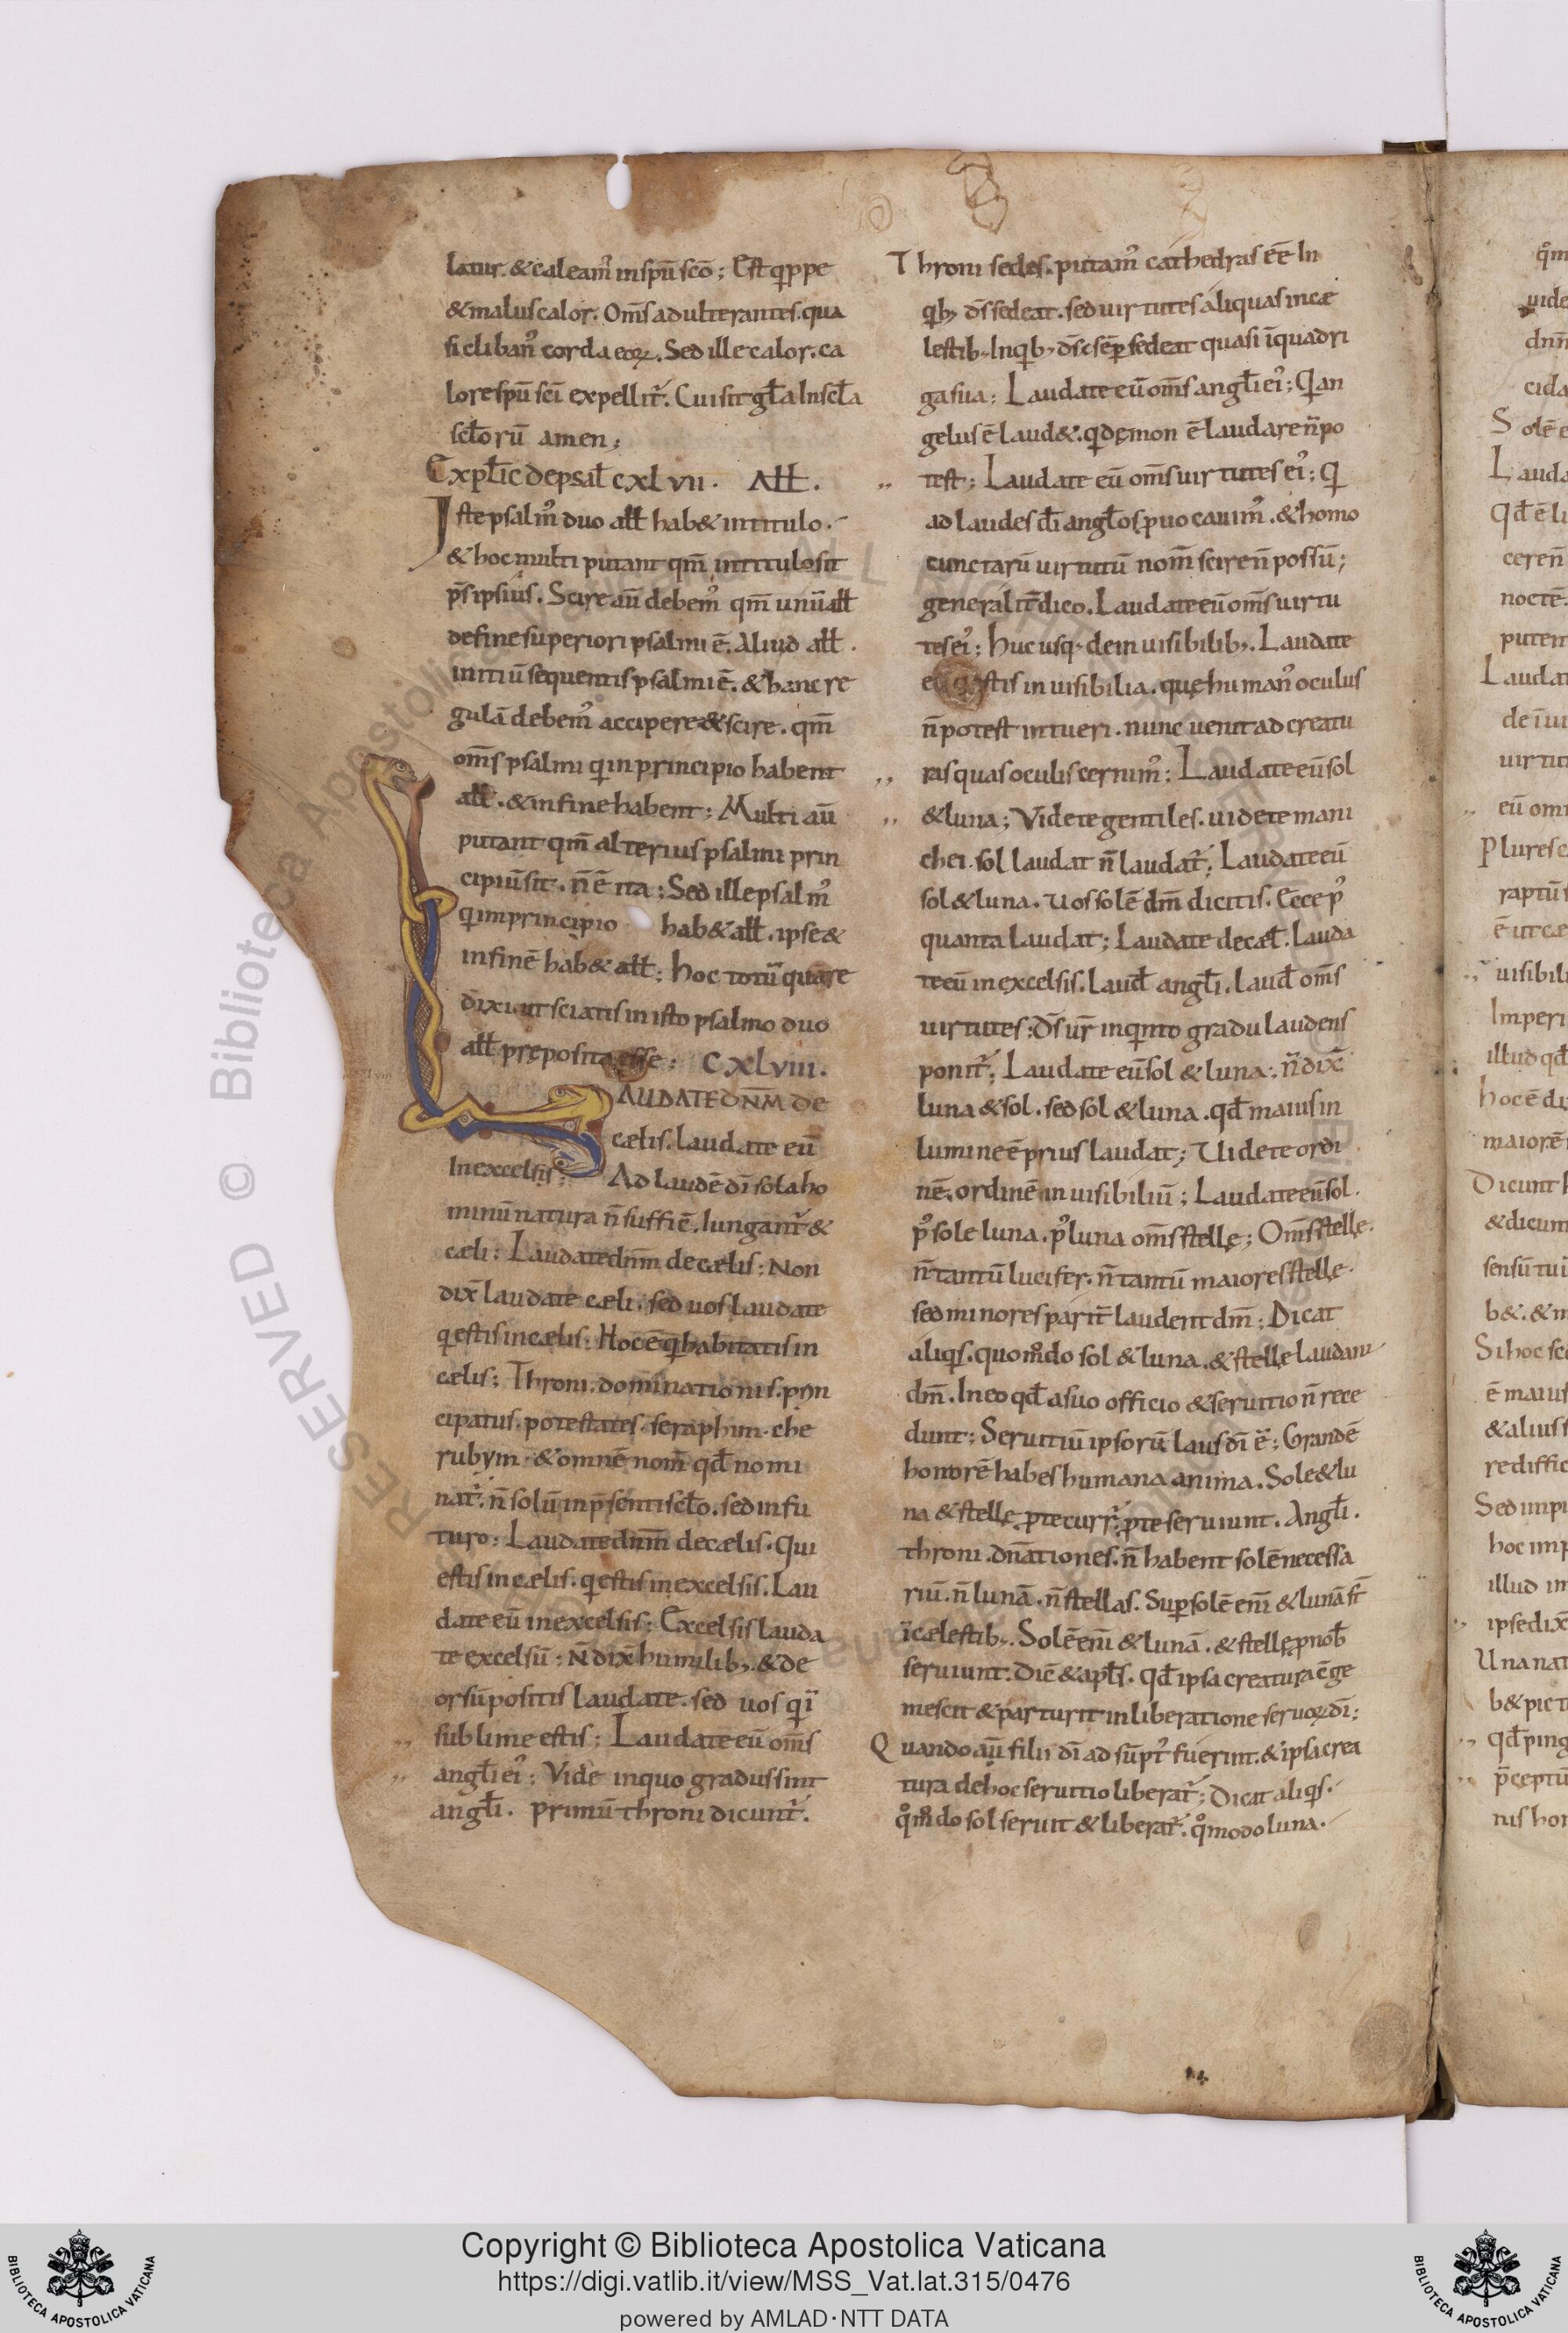 latur. & caleam᷒ in spū scō; Est q̣ppe
& malus calor. Om̄s adulterantes. qua
si cliban᷒ corda eoꝝ. Sed ille calor. ca
lore spū sc̄i expellit᷑. Cui sit gl̄a In scl̄a
scl̄orū amen;
Expl̄ic de psal̄ cxlvii. All̄.
Iste psalm᷒ duo all̄ hab& in titulo.
& hoc multi putant qm̄ in titulo sit
p̄s ipsius. Scire aū debem᷒ qm̄ unū all̄
de fine superiori psalmi ē. Aliud all̄.
initiū sequentis psalmi ē. & hanc re
gulā debem᷒ accipere & scire. qm̄
om̄s psalmi qui in principio habent
all̄. & in fine habent; Multi aū
putant qm̄ alterius psalmi prin
cipiū sit. n̄ ē ita; Sed ille psalm᷒
q in principio hab& all̄. ipse &
in finē hab& all̄; hoc totū quare
dixi. ut sciatis in isto psalmo duo
all̄ pręposita esse; CXLVIII.
LAUDATE DN̄M DE
cælis. laudate eū
In excelsis; Ad laudē dī sola ho
minū natura n̄ suffiċ. Iungant᷑ &
cæli; Laudate dn̄m de cælis; Non
dix̄ laudate cæli. sed uos laudate
q estis in cælis. Hoc ē q habitatis in
cælis; Throni. dominationis. prin
cipatus. potestates. seraphim. che
rubym. & omnē nom̄ qd̄ nomi
nat᷑. n̄ solū in p̄senti scl̄o. sed in fu
turo; Laudate dn̄m de cælis. Qui
estis in cælis. q estis in excelsis. Lau
date eū in excelsis; Excelsis lauda
te excelsū; N̄ dix̄ humilib; & de
orsū positis laudate. sed uos qi
sublime estis; Laudate eū om̄s
angl̄i ei᷒; Vide in quo gradus sint
angl̄i. primū throni dicunt᷑.
Throni sedes. putam᷒ cathedras ēē In
qb; d̄s sedeat. sed uirtutes aliquas in cæ
lestib; In qb; d̄s sēp sedeat quasi ī quadri
ga sua; Laudate eū om̄s angl̄i ei᷒; Q an
gelus ē laud&. q dęmon ē laudare n̄ po
test; Laudate eū om̄s uirtutes ei᷒; Q
ad laudes dī angl̄os puocauim᷒. & homo
cunctarū uirtutū nom̄ scire n̄ possū;
generalit̄ dico. Laudate eū om̄s uirtu
tes ei᷒; huc usq; de inuisibilib; Laudate
inuisibilia. quę human᷒ oculus
n̄ potest intueri. nunc uenit ad creatu
ras quas oculis cernim᷒; Laudate eū sol
& luna; Videte gentiles. uidete mani
chei. sol laudat n̄ laudat᷑; Laudate eū
sol & luna. Uos solē dm̄ dicitis. Ecce p᷒
quanta laudat; Laudate de cæl̄. Lauda
te eū in excelsis. Laud̄ angl̄i. laud̄ om̄s
uirtutes; d̄s ur̄ in q̣nto gradu laudens
ponit᷑; Laudate eū sol & luna; n̄ dix̄
luna & sol. sed sol & luna. qd̄ maius in
lumine ē prius laudat; Uidete ordi
nē. ordinē inuisibiliū; Laudate eū sol.
p᷒ sole luna. p᷒ luna om̄s stellę; Om̄s stellę.
n̄ tantū lucifer. n̄ tantū maiores stellę.
sed minores parit̄ laudent dm̄; Dicat
aliqs. quom̊do sol & luna. & stellę laudant
dm̄. In eo qd̄ a suo officio & seruitio n̄ rece
dunt; Seruitiū ipsorū laus dī ē; Grandē
honorē habes humana anima. Sole & lu
na & stellę p te curr᷑. p te seruiunt. Angl̄i.
throni. dn̄ationes. n̄ habent solē necessa
riū. n̄ lunā. n̄ stellas. Sup solē eni & lunā st̄
ī cælestib; Solē eni & lunā. & stellę p nob̄
seruiunt. Dic̄ & apl̄s. qd̄ ipsa creatura cge
mescit & parturit in liberatione seruoꝝ dī;
Quando aū filii dī adsūpt᷑ fuerint. & ipsa crea
tura de hoc seruitio liberat᷑; Dicat aliqs.
qm̊do sol seruit & liberat᷑. qm̊odo luna.
Copyright © Biblioteca Apostolica Vaticana
https://digi.vatlib.it/view/MSS_Vat.lat.315/0476
powered by AMLAD·NTT DATA
BIBLIOTECA APOSTOLICA VATICANA
BIBLIOTECA APOSTOLICA VATICANA